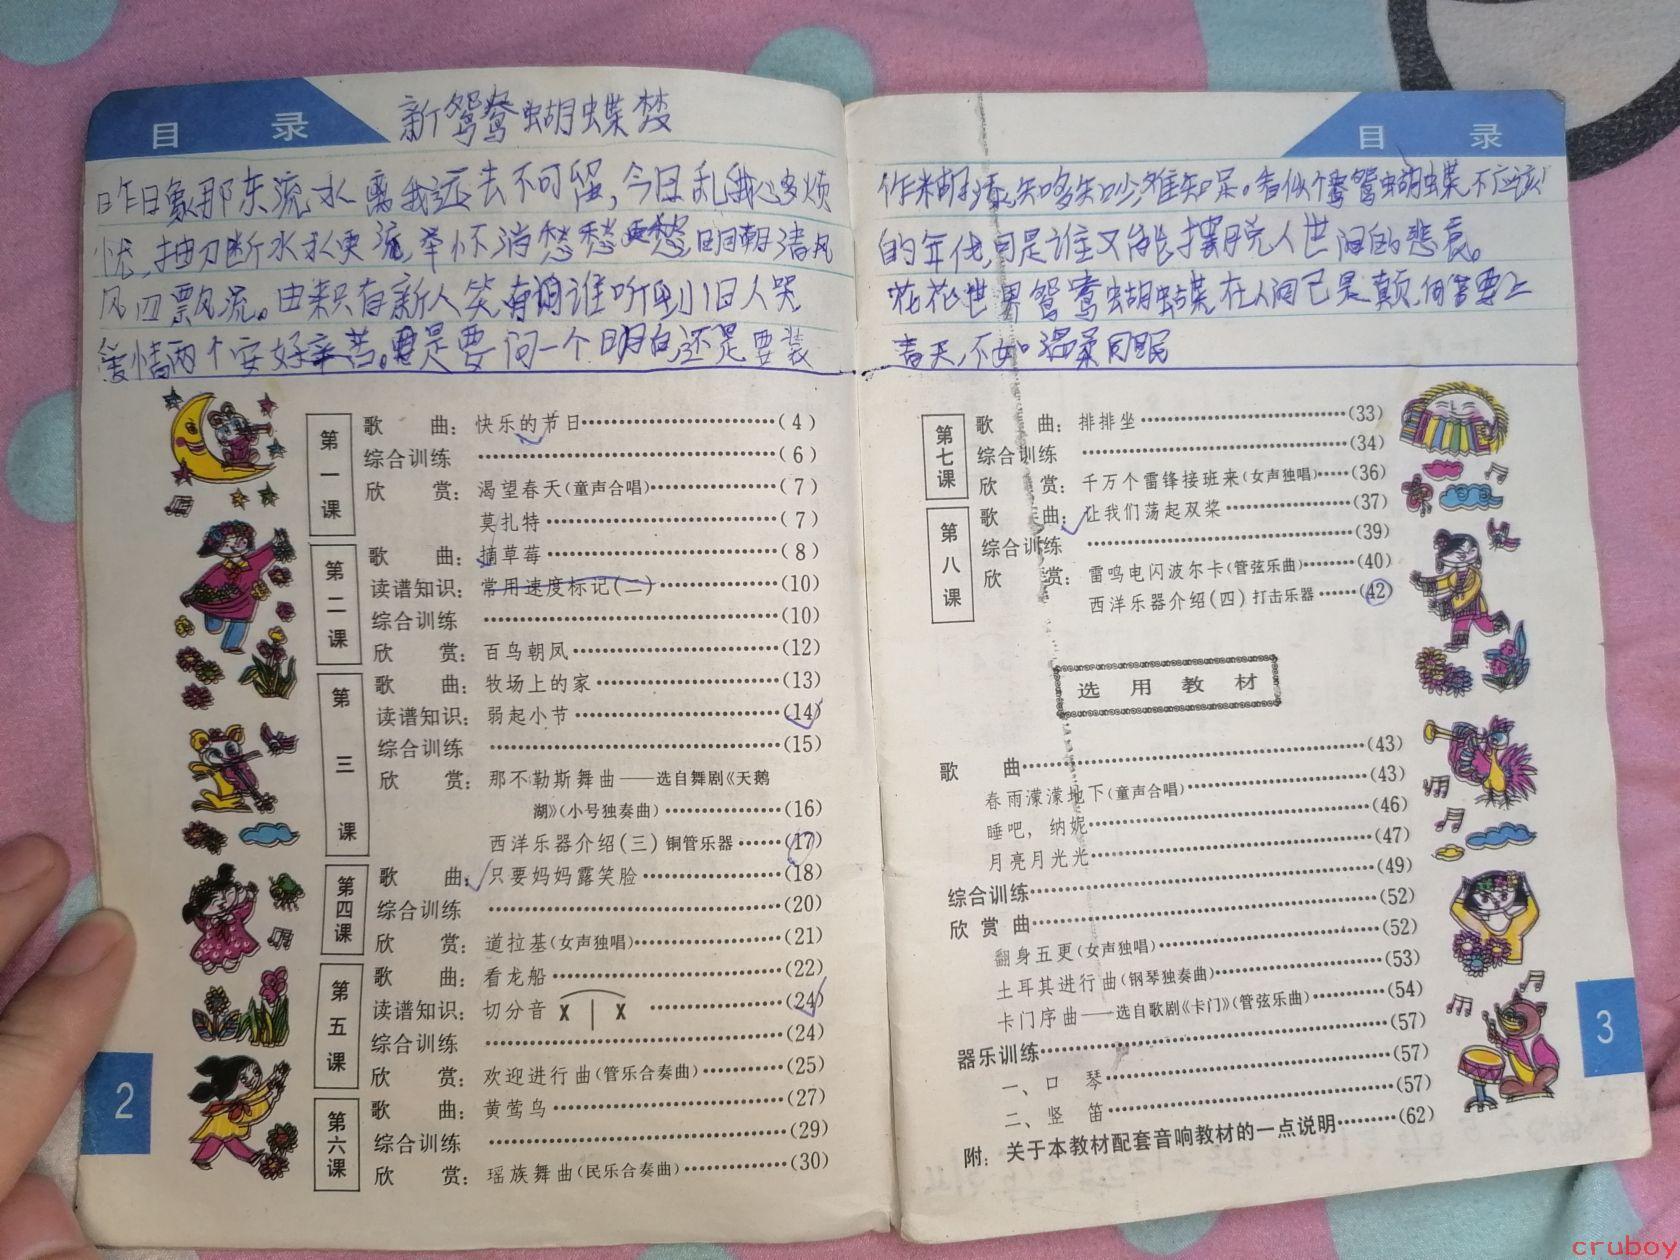 目 录
新鸳鸯蝴蝶梦
昨日象那东流水离我远去不可留,今日乱我心多烦
忧,抽刀断水水更流,举杯消愁愁更愁 明朝清风
风四飘流。由来只有新人笑有谁听到旧人哭
爱情两个字好辛苦。是要问一个明白还是要装
第一课
歌 曲:快乐的节日(4)
综合训练(6)
欣 赏:渴望春天(童声合唱)(7)
莫扎特(7)
第二课
歌 曲:摘草莓(8)
读谱知识:常用速度标记(二)(10)
综合训练(10)
欣 赏:百鸟朝凤(12)
第三课
歌 曲:牧场上的家(13)
读谱知识:弱起小节(14)
综合训练(15)
欣 赏:那不勒斯舞曲——选自舞剧《天鹅
湖》(小号独奏曲)(16)
西洋乐器介绍(三)铜管乐器(17)
第四课
歌 曲:只要妈妈露笑脸(18)
综合训练(20)
欣 赏:道拉基(女声独唱)(21)
第五课
歌 曲:看龙船(22)
读谱知识:切分音 X | X(24)
综合训练(24)
欣 赏:欢迎进行曲(管乐合奏曲)(25)
第六课
歌 曲:黄莺鸟(27)
综合训练(29)
欣 赏:瑶族舞曲(民乐合奏曲)(30)
2
目 录
作糊涂,知多知少难知足。看似个鸳鸯蝴蝶不应该
的年代,可是谁又能摆脱人世间的悲哀。
花花世界鸳鸯蝴蝶在人间已是颠何苦要上
青天,不如温柔同眠
第七课
歌 曲:排排坐(33)
综合训练(34)
欣 赏:千万个雷锋接班来(女声独唱)(36)
第八课
歌 曲:让我们荡起双桨(37)
综合训练(39)
欣 赏:雷鸣电闪波尔卡(管弦乐曲)(40)
西洋乐器介绍(四)打击乐器(42)
选用教材
歌 曲(43)
春雨濛濛地下(童声合唱)(43)
睡吧,纳妮(46)
月亮月光光(47)
综合训练(49)
欣赏曲(52)
翻身五更(女声独唱)(52)
土耳其进行曲(钢琴独奏曲)(53)
卡门序曲——选自歌剧《卡门》(管弦乐曲)(54)
器乐训练(57)
一、口 琴(57)
二、竖 笛(57)
附:关于本教材配套音响教材的一点说明(62)
3
cruboy